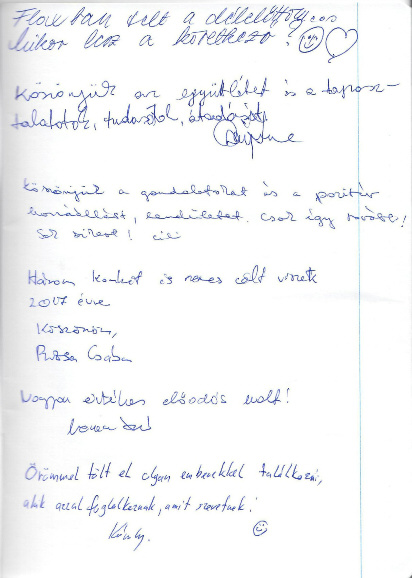 Flow ban telt a délelőtt
mikor lesz a következő?
Köszönjük az együttlétet és a tapasz-
talatok, tudástok, átadását
Köszönjük a gondolatokat és a pozitív
hozzáállást, lendületet. Csak így tovább!
Sok sikert! Cili
Három konkrét és nemes célt viszek
2007 évre
Köszönöm,
Rózsa Csaba
Nagyon értékes előadás volt!
Örömmel tölt el olyan emberekkel találkozni,
akik azzal foglalkoznak, amit szeretnek!